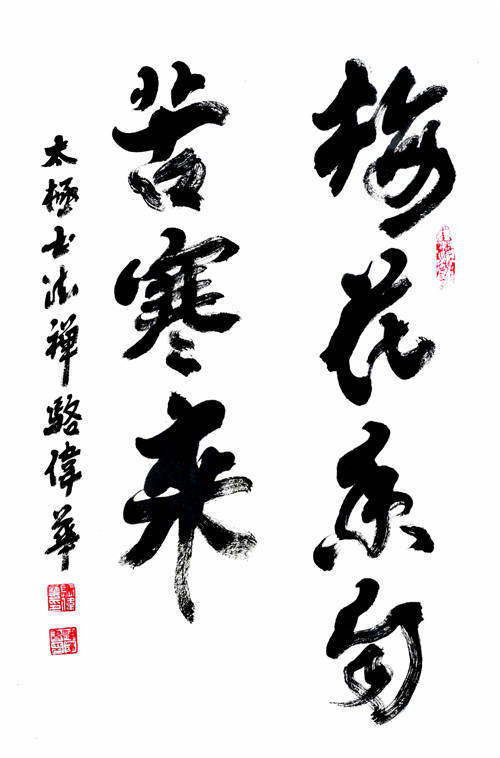 梅花香自
苦寒来
太極书法禪駱偉華